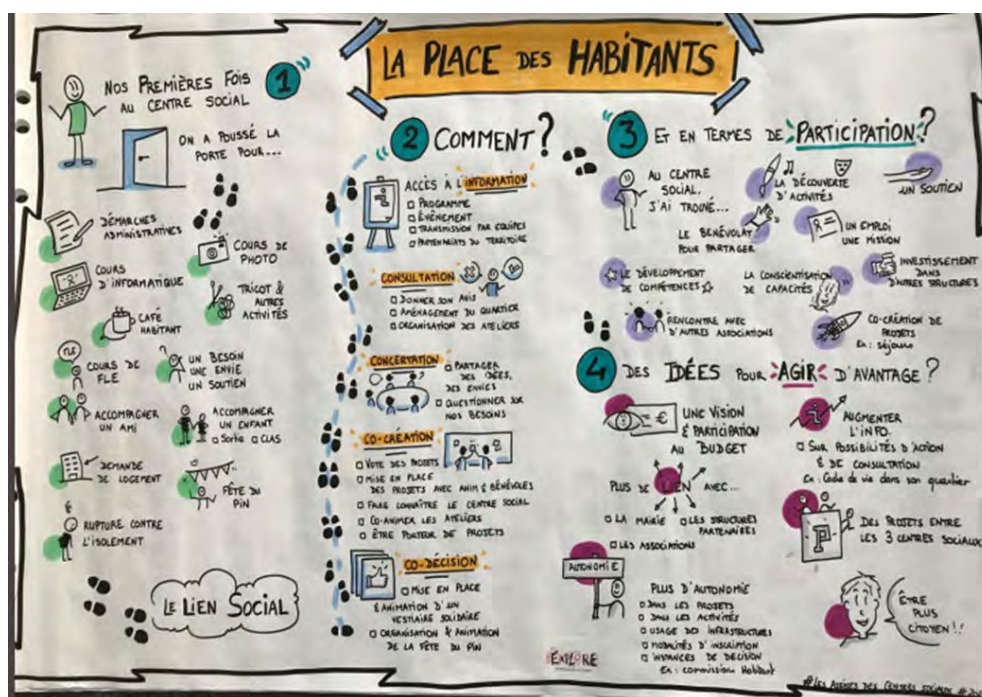 LA PLACE DES HABITANTS
NOS PREMIÈRES FOIS
AU CENTRE SOCIAL
1
ON A POUSSÉ LA
PORTE POUR...
DÉMARCHES
ADMINISTRATIVES
COURS DE
PHOTO
COURS
D'INFORMATIQUE
TRICOT &
AUTRES
ACTIVITÉS
CAFÉ
HABITANT
FLE
COURS DE
FLE
UN BESOIN
UNE ENVIE
UN SOUTIEN
ACCOMPAGNER
UN AMI
ACCOMPAGNER
UN ENFANT
Sortie CLAS
DEMANDE
DE LOGEMENT
FÊTE DU
PIN
RUPTURE CONTRE
L'ISOLEMENT
LE LIEN SOCIAL
2 COMMENT?
ACCÈS À L'INFORMATION
PROGRAMME
ÉVÉNEMENT
TRANSMISSION PAR ÉQUIPES
PARTENARIATS DU TERRITOIRE
CONSULTATION
DONNER SON AVIS
AMÉNAGEMENT DU QUARTIER
ORGANISATION DES ATELIERS
CONCERTATION
PARTAGER
DES IDÉES,
DES ENVIES
QUESTIONNER SUR
NOS BESOINS
CO-CRÉATION
VOTE DES PROJETS
MISE EN PLACE
DES PROJETS AVEC ANIM & BÉNÉVOLES
FAIRE CONNAÎTRE LE CENTRE SOCIAL
CO-ANIMER LES ATELIERS
ÊTRE PORTEUR DE PROJETS
CO-DÉCISION
MISE EN PLACE
& ANIMATION D'UN
VESTIAIRE SOLIDAIRE
ORGANISATION & ANIMATION
DE LA FÊTE DU PIN
3 ET EN TERMES DE PARTICIPATION?
AU CENTRE
SOCIAL,
J'AI TROUVÉ...
LA DÉCOUVERTE
D'ACTIVITÉS
UN SOUTIEN
LE BÉNÉVOLAT
POUR PARTAGER
UN EMPLOI
UNE MISSION
LE DÉVELOPPEMENT
DE COMPÉTENCES
LA CONSCIENTISATION
DE CAPACITÉS
INVESTISSEMENT
DANS
D'AUTRES STRUCTURES
RENCONTRE AVEC
D'AUTRES ASSOCIATIONS
CO-CRÉATION DE
PROJETS
Ex : séjours
4 DES IDÉES POUR AGIR D'AVANTAGE?
UNE VISION
& PARTICIPATION
AU BUDGET
AUGMENTER
L'INFO.
SUR POSSIBILITÉS D'ACTION
& DE CONSULTATION
Ex : Cadre de vie dans son quartier
PLUS DE LIEN AVEC...
LA MAIRIE LES STRUCTURES
PARTENAIRES
LES ASSOCIATIONS
DES PROJETS ENTRE
LES 3 CENTRES SOCIAUX
AUTONOMIE
PLUS D'AUTONOMIE
DANS LES PROJETS
DANS LES ACTIVITÉS
USAGE DES INFRASTRUCTURES
MODALITÉS D'INSCRIPTION
INSTANCES DE DÉCISION
Ex : commission Habitant
ÊTRE
PLUS
CITOYEN!!
EXPLORE
#LES ASSISES DES CENTRES SOCIAUX